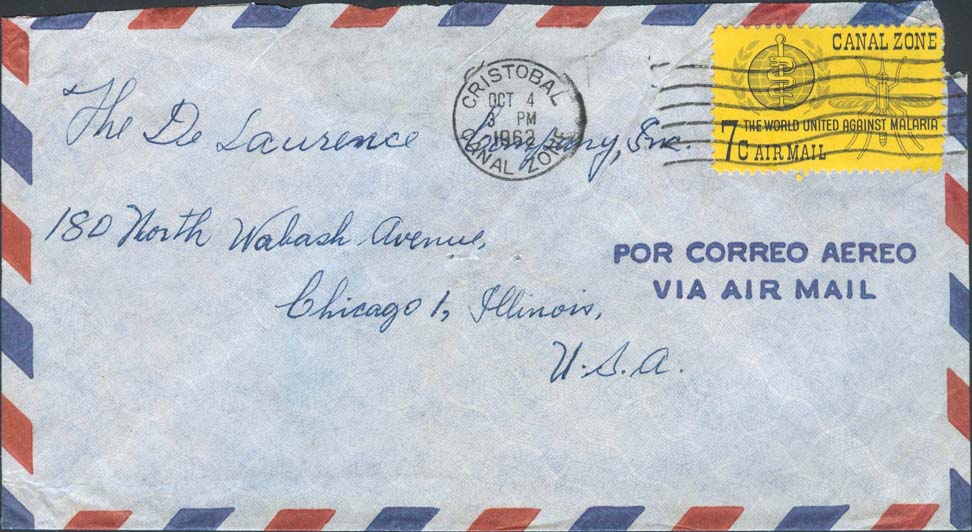 CANAL ZONE
THE WORLD UNITED AGAINST MALARIA
7c AIR MAIL
CRISTOBAL
OCT 4
3 PM
1962
CANAL ZONE
The De Laurence Company, Inc.
180 North Wabash Avenue,
Chicago 1, Illinois,
U.S.A.
POR CORREO AEREO
VIA AIR MAIL